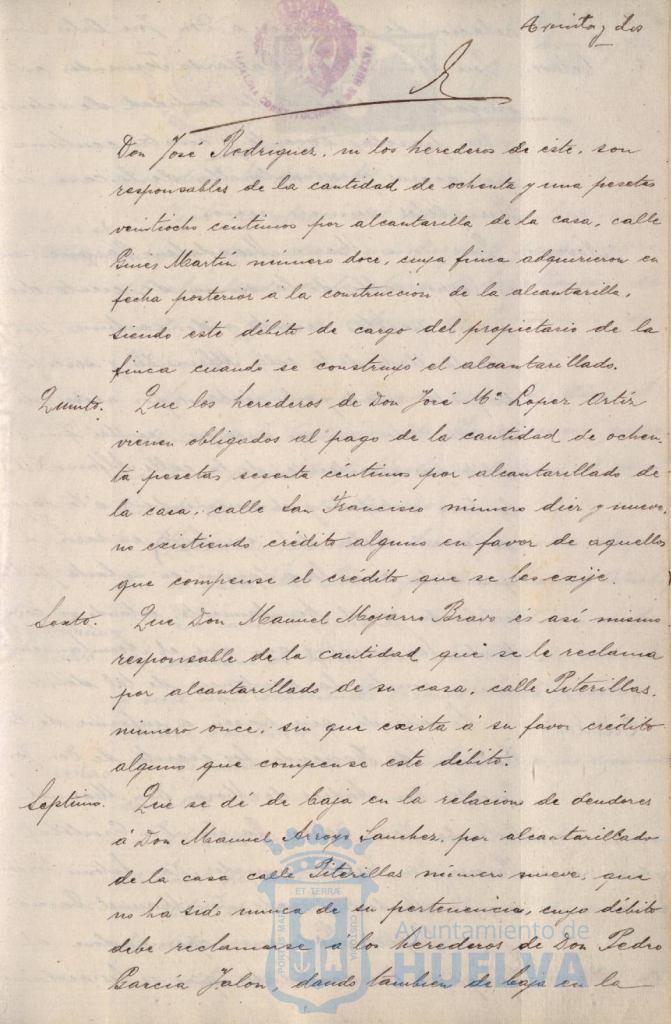 treinta y dos
Don José Rodriguez, ni los herederos de este, son
responsables de la cantidad de ochenta y una pesetas
veintiocho centimos por alcantarilla de la casa, calle
Ginés Martín número doce, cuya finca adquirieron en
fecha posterior á la construccion de la alcantarilla,
siendo este débito de cargo del propietario de la
finca cuando se construyó el alcantarillado.
Quinto. Que los herederos de Don José Mª Lopez Ortíz
vienen obligados al pago de la cantidad de ochen-
ta pesetas sesenta céntimos por alcantarillado de
la casa, calle San Francisco número diez y nueve,
no existiendo crédito alguno en favor de aquellos
que compense el crédito que se les exije.
Sexto. Que Don Manuel Mojarro Bravo es así mismo
responsable de la cantidad que se le reclama
por alcantarillado de su casa, calle Piterillas,
número once, sin que exista á su favor crédito
alguno que compense este débito.
Septimo. Que se dé de baja en la relacion de deudores
á Don Manuel Arroyo Sanchez, por alcantarillado
de la casa calle Piterillas número nueve, que
no ha sido nunca de su pertenencia, cuyo débito
debe reclamarse á los herederos de Don Pedro
García Jalon, dando tambien de baja en la
ET TERRÆ
PORTUS MARIS
CUSTODIA
Ayuntamiento de
HUELVA